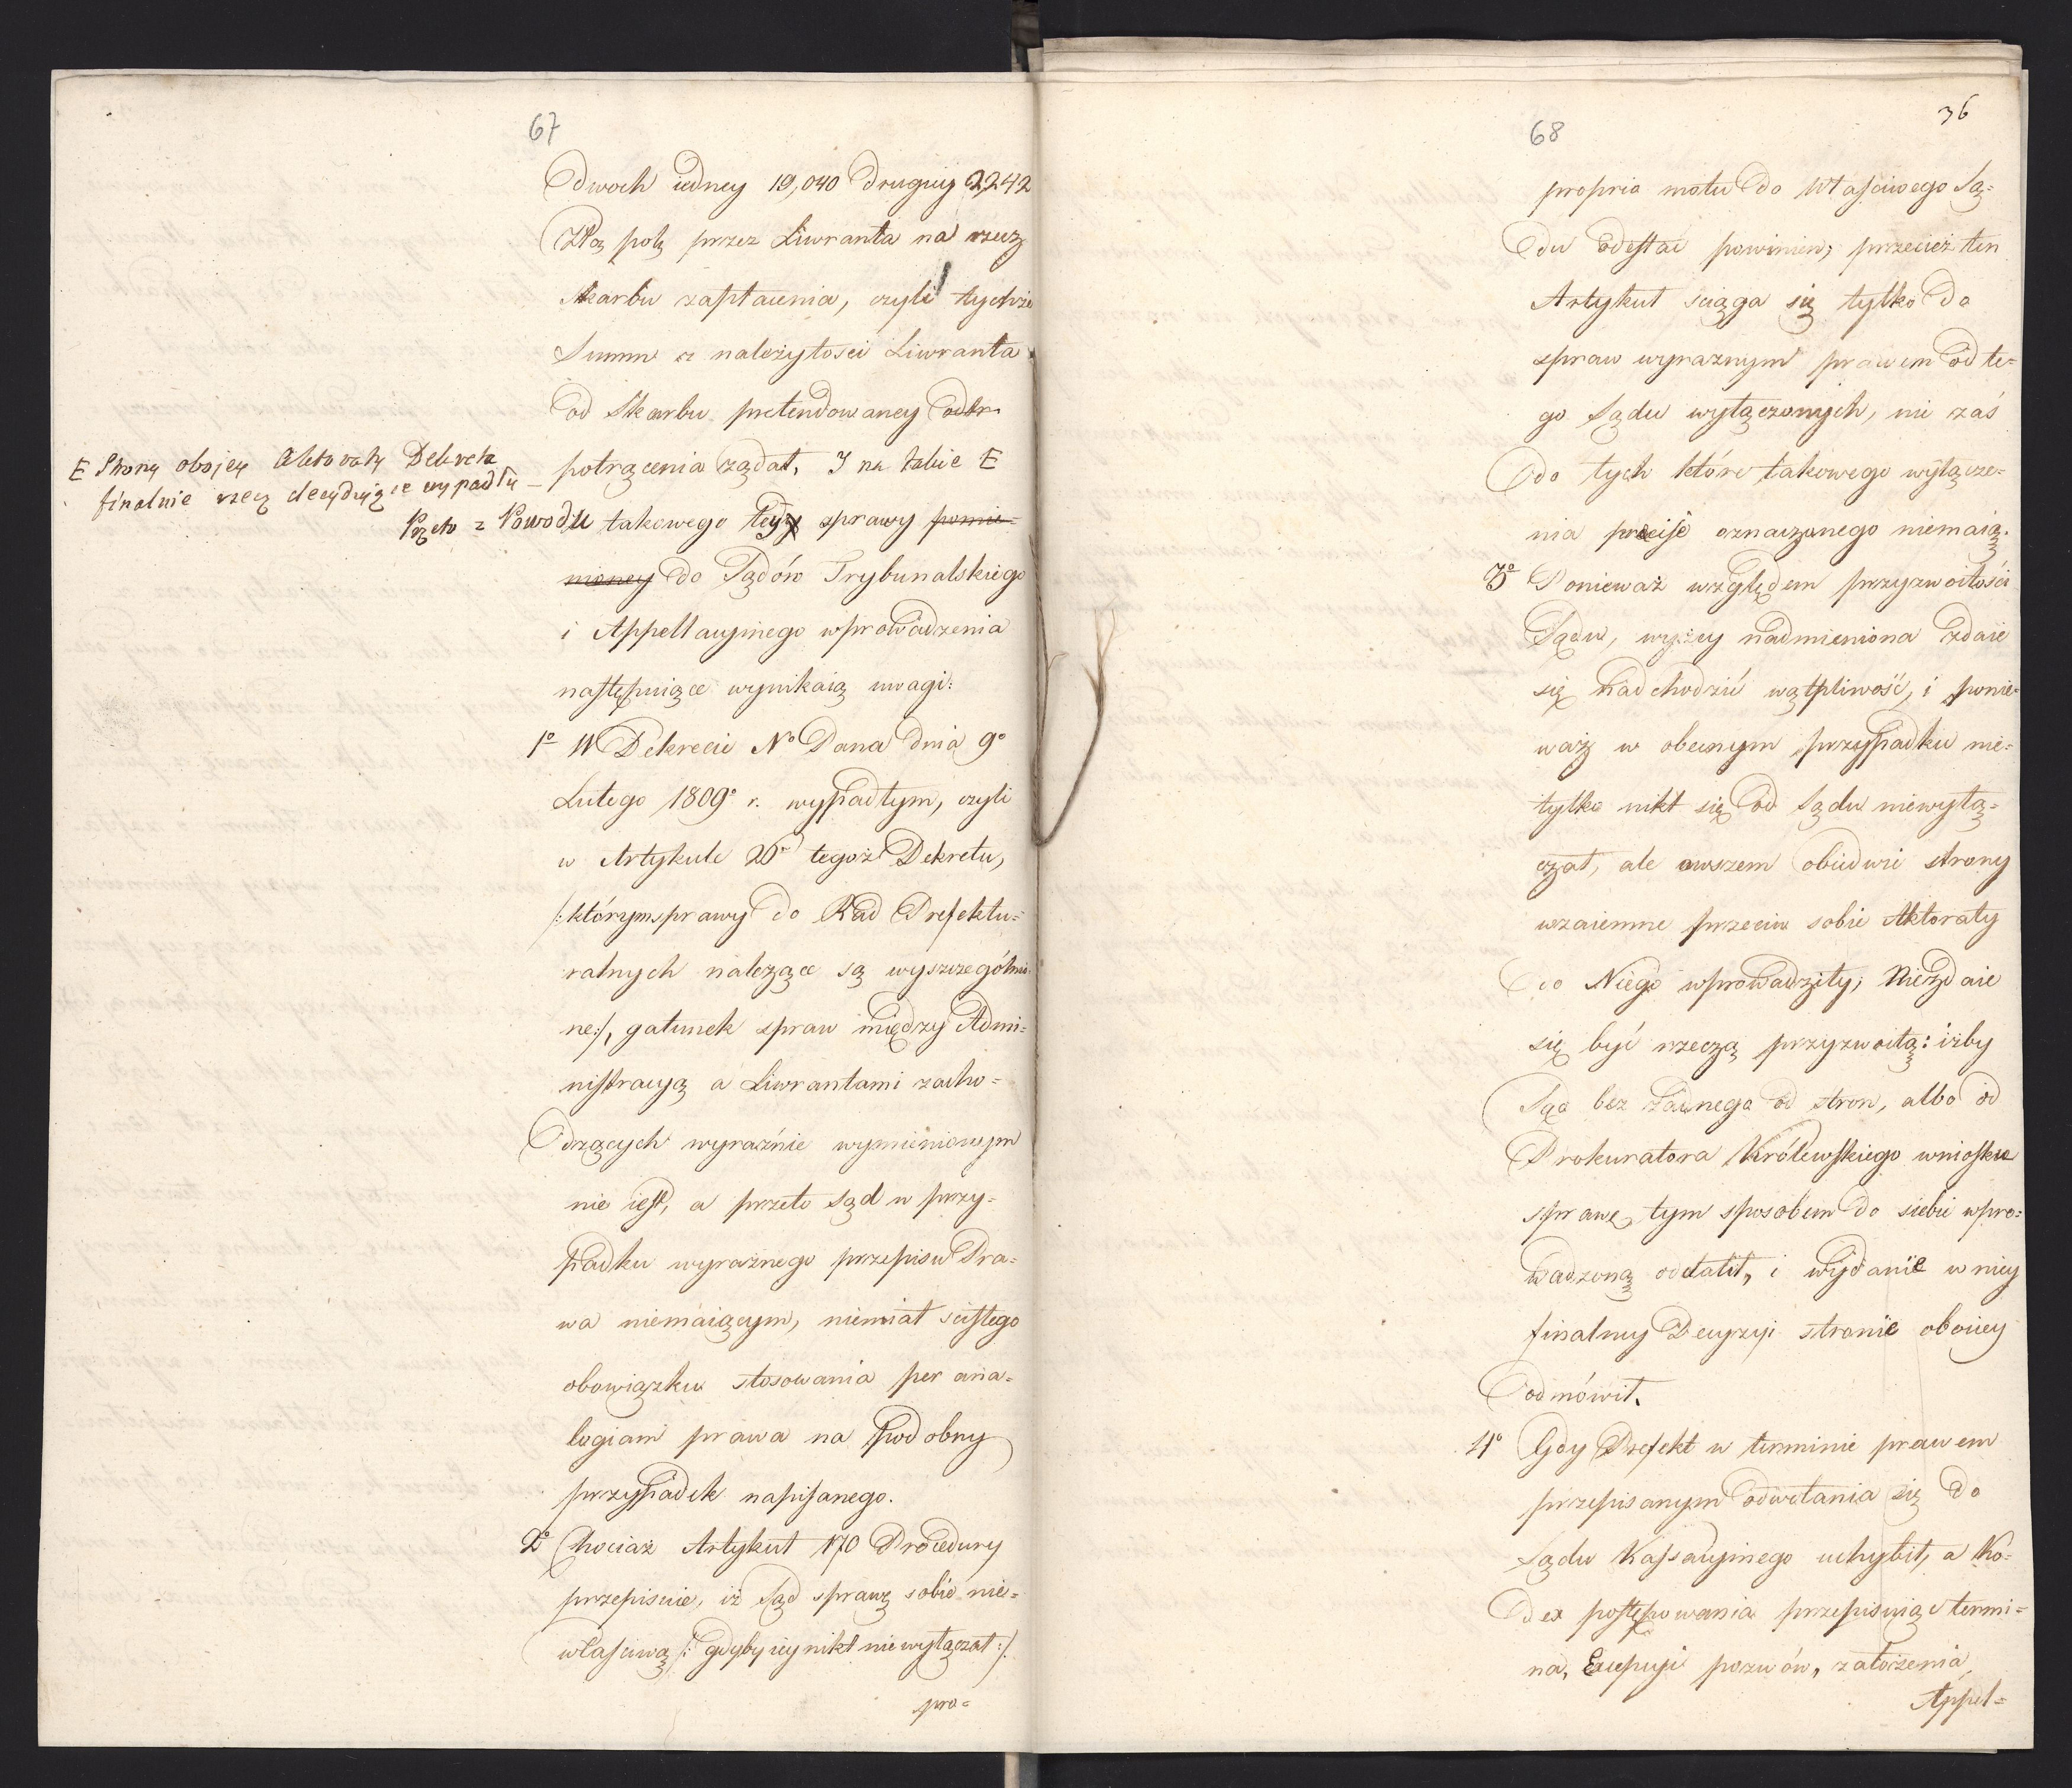 67
Dwoch iedney 19,040 drugiey 2,242
Złł. pol. przez Liwranta na rzecz
Skarbu zapłacenia, czyli tychże
Summ z należytości Liwranta
od Skarbu pretendowaney
potrącenia żądał, I na takie E
E Strony obojey Aktoraty Dekreta
finalnie rzecz decydujące wypadły –
Przeto z Powodu takowego tedy sprawy pomie-
nioney do Sądów Trybunalskiego
i Appellacyinego wprowadzenia
następuiące wynikaią uwagi:
1o W Dekrecie No Dana dnia 9o
Lutego 1809o r. wypadłym, czyli
w Artykule tegoż Dekretu,
/:którym sprawy do Rad Prefektu=
ralnych należące są wyszczególnio-
ne:/, gatunek spraw między Admi=
nistracyą a Liwrantami zacho=
dzących wyraźnie wymienionym
nie iest, a przeto Sąd w przy=
padku wyraźnego przepisu Pra=
wa niemaiącym, niemiał scisłego
obowiązku stosowania per ana=
logiam prawa na podobny
przypadek napisanego.
2o Chociaż Artykuł 170 Procedury
przepisuie, iż Sąd sprawę sobie nie=
właściwą /: gdyby iey nikt nie wyłączał :/
pro=
36
68
proprio motu do właściwego Są=
du odesłać powinien; przecież ten
Artykuł sciąga się tylko do
spraw wyraznym prawem od te=
go Sądu wyłączonych, nie zaś
do tych które takowego wyłącze=
nia precise oznaczonego niemaią.
3o Ponieważ względem przyzwoitości
Sądu, wyżey nadmieniona zdaie
się nadchodzić wątpliwość, i ponie=
waż w obecnym przypadku nie=
tylko nikt się od Sądu niewyłą=
czał, ale owszem obiedwie strony
wzaiemne przeciw sobie Aktoraty
do Niego wprowadziły; Niezdaie
się być rzeczą przyzwoitą: iżby
Sąd bez żadnego od stron, albo od
Prokuratora Królewskiego wniosku
sprawę tym sposobem do siebie wpro=
wadzoną oddalił, i wydanie w niey
finalney Decyzyi stronie oboiey
odmówił.
4o Gdy Prefekt w terminie prawem
przepisanym odwołania się do
Sądu Kassacyinego uchybił, a Ko=
dex postępowania przepisuiąc termi=
na, Excepcyi pozwów, założenia
Appel=